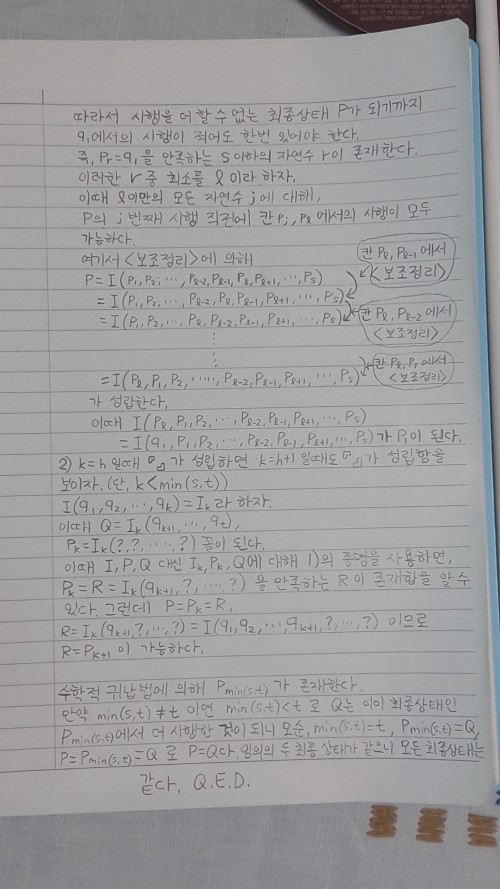 따라서 시행을 더 할 수 없는 최종상태 P가 되기까지
q₁에서의 시행이 적어도 한번 있어야 한다.
즉, Pr=q₁을 만족하는 s이하의 자연수 r이 존재한다.
이러한 r 중 최소를 l이라 하자.
이때 l미만의 모든 자연수 j에 대해,
P의 j번째 시행 직전에 칸 Pj, Pl에서의 시행이 모두
가능하다.
여기서 <보조정리>에 의해
P = I(P₁, P₂, ⋯, Pl-2, Pl-1, Pl, Pl+1, ⋯, Ps)
칸 Pl, Pl-1에서
<보조정리>
= I(P₁, P₂, ⋯, Pl-2, Pl, Pl-1, Pl+1, ⋯, Ps)
= I(P₁, P₂, ⋯, Pl, Pl-2, Pl-1, Pl+1, ⋯, Ps)
칸 Pl, Pl-2에서
<보조정리>
⋮
= I(Pl, P₁, P₂, ⋯⋯, Pl-2, Pl-1, Pl+1, ⋯, Ps)
칸 Pl, P₁에서
<보조정리>
가 성립한다.
이때 I(Pl, P₁, P₂, ⋯, Pl-2, Pl-1, Pl+1, ⋯, Ps)
= I(q₁, P₁, P₂, ⋯, Pl-2, Pl-1, Pl+1, ⋯, Ps)가 P₁이 된다.
2) k=h 일때 『P』가 성립하면 k=h+1 일때도 『P』가 성립함을
보이자. (단, k<min(s,t))
I(q₁, q₂, ⋯, qk) = Ik라 하자.
이때 Q = Ik(qk+1, ⋯, qt),
Pk = Ik(?, ?, ⋯, ?) 꼴이 된다.
이때 I, P, Q 대신 Ik, Pk, Q에 대해 1)의 증명을 사용하면,
Pk = R = Ik(qk+1, ?, ⋯, ?)을 만족하는 R이 존재함을 알 수
있다. 그런데 P=Pk=R,
R = Ik(qk+1, ?, ⋯, ?) = I(q₁, q₂, ⋯, qk+1, ?, ⋯, ?) 이므로
R = Pk+1이 가능하다.
수학적 귀납법에 의해 Pmin(s,t)가 존재한다.
만약 min(s,t)≠t 이면 min(s,t)<t 로 Q는 이미 최종상태인
Pmin(s,t)에서 더 시행한 것이 되니 모순, min(s,t)=t, Pmin(s,t)=Q,
P=Pmin(s,t)=Q 로 P=Q다. 임의의 두 최종상태가 같으니 모든 최종상태는
같다. Q.E.D.